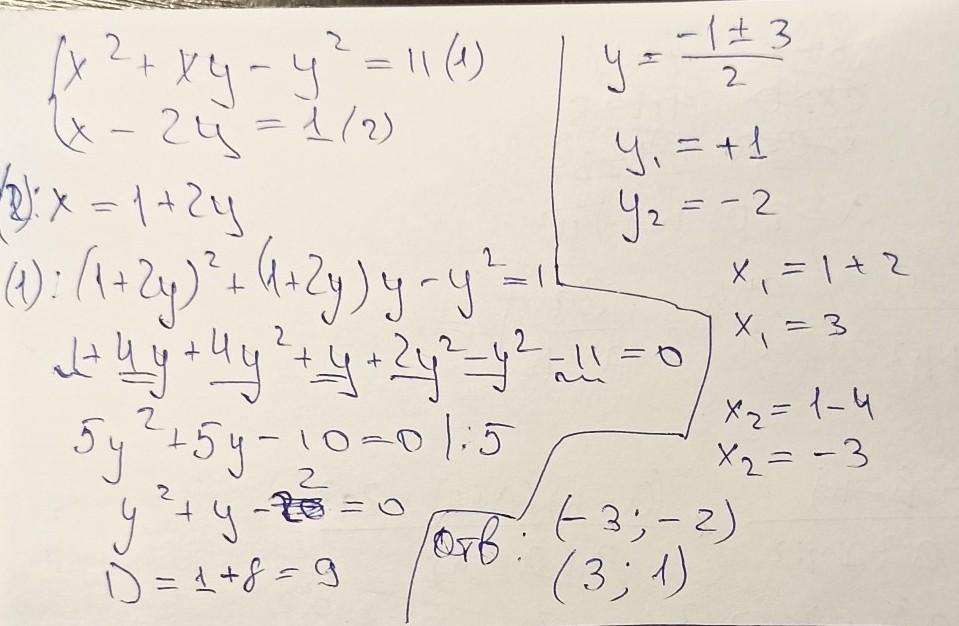 {x² + xy - y² = 11 (1)
{x - 2y = 1 (2)
(2): x = 1 + 2y
(1): (1+2y)² + (1+2y)y - y² = 11
1 + 4y + 4y² + y + 2y² - y² - 11 = 0
5y² + 5y - 10 = 0 |:5
y² + y - 2 = 0
D = 1 + 8 = 9
y = (-1 ± 3)/2
y₁ = +1
y₂ = -2
x₁ = 1 + 2
x₁ = 3
x₂ = 1 - 4
x₂ = -3
Отв: (-3; -2)
(3; 1)